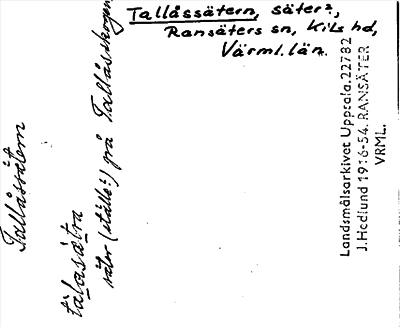 Tallåssätern, säter?,
Ransäters sn, Kils hd,
Värml. län.
Tallåssätern
tàlasæ̀tra
säter (ställe?) på Tallåsskogen
Landsmålsarkivet Uppsala. 22782
J. Hedlund 1916-54. RANSÄTER
VRML.